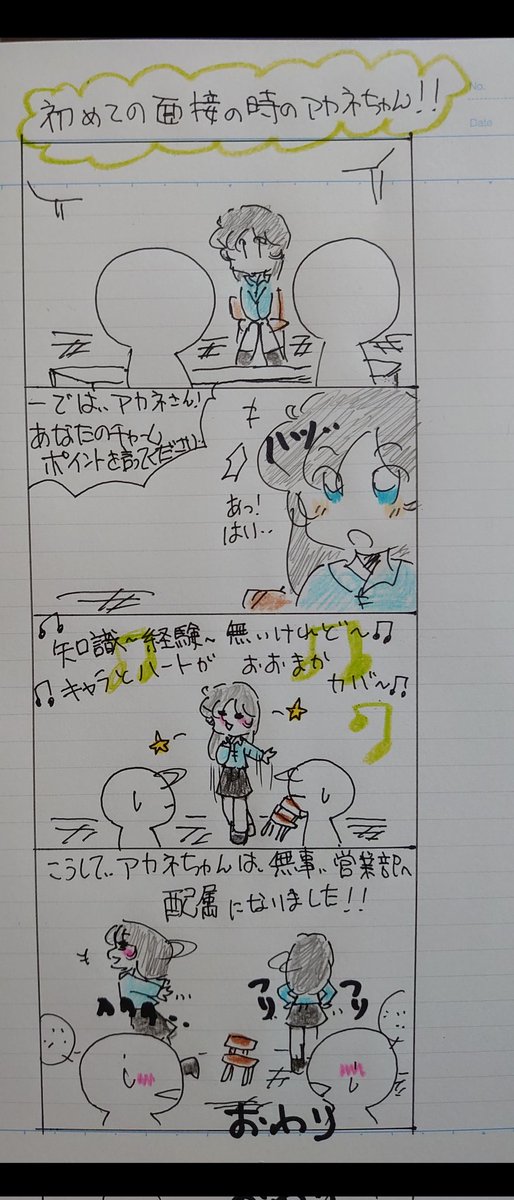 初めての面接の時のアカネちゃん!!
No.
Date
ーでは、、アカネさん!
あなたのチャーム
ポイントを言ってください
ハッ..
あっ!
はい..
♫知識〜経験〜 無いけれど〜♫
♫キャラとハートが おおまか
カバ〜♫
こうして、、アカネちゃんは、無事、、営業部へ
配属になりました!!
おわり